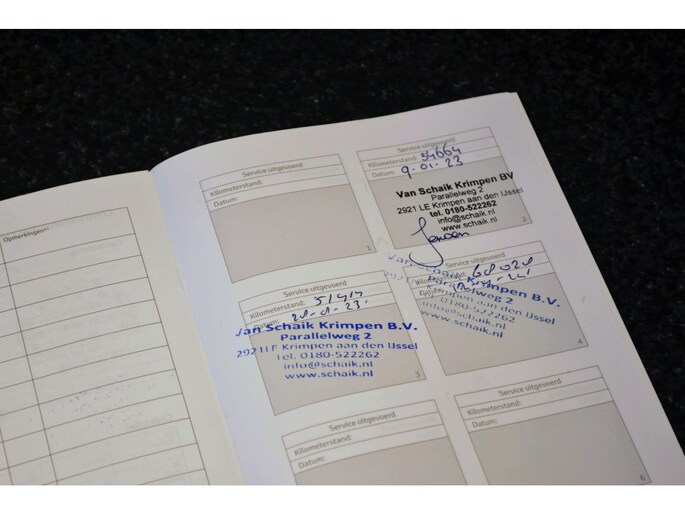 Opmerkingen
Service uitgevoerd
Kilometerstand:
Datum:
1
Service uitgevoerd
Kilometerstand: 34664
Datum: 9-01-23
Van Schaik Krimpen BV
Parallelweg 2
2921 LE Krimpen aan den IJssel
tel. 0180-522262
info@schaik.nl
www.schaik.nl
2
Service uitgevoerd
Kilometerstand:
Datum:
Van Schaik Krimpen B.V.
Parallelweg 2
2921LE Krimpen aan den IJssel
Tel. 0180-522262
info@schaik.nl
www.schaik.nl
3
Service uitgevoerd
Kilometerstand: 68028
Datum:
Van Schaik Krimpen B.V.
Parallelweg 2
Krimpen aan den IJssel
0180-522262
info@schaik.nl
www.schaik.nl
4
Service uitgevoerd
Kilometerstand:
Datum:
Service uitgevoerd
Kilometerstand:
Datum:
6